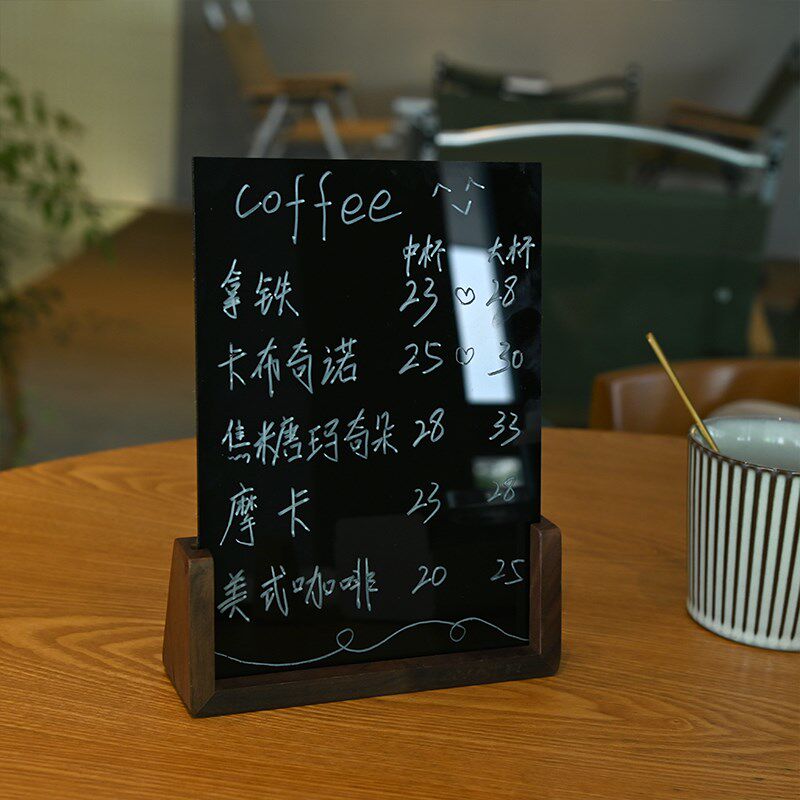 coffee
中杯 大杯
拿铁 23 28
卡布奇诺 25 30
焦糖玛奇朵 28 33
摩卡 23 28
美式咖啡 20 25